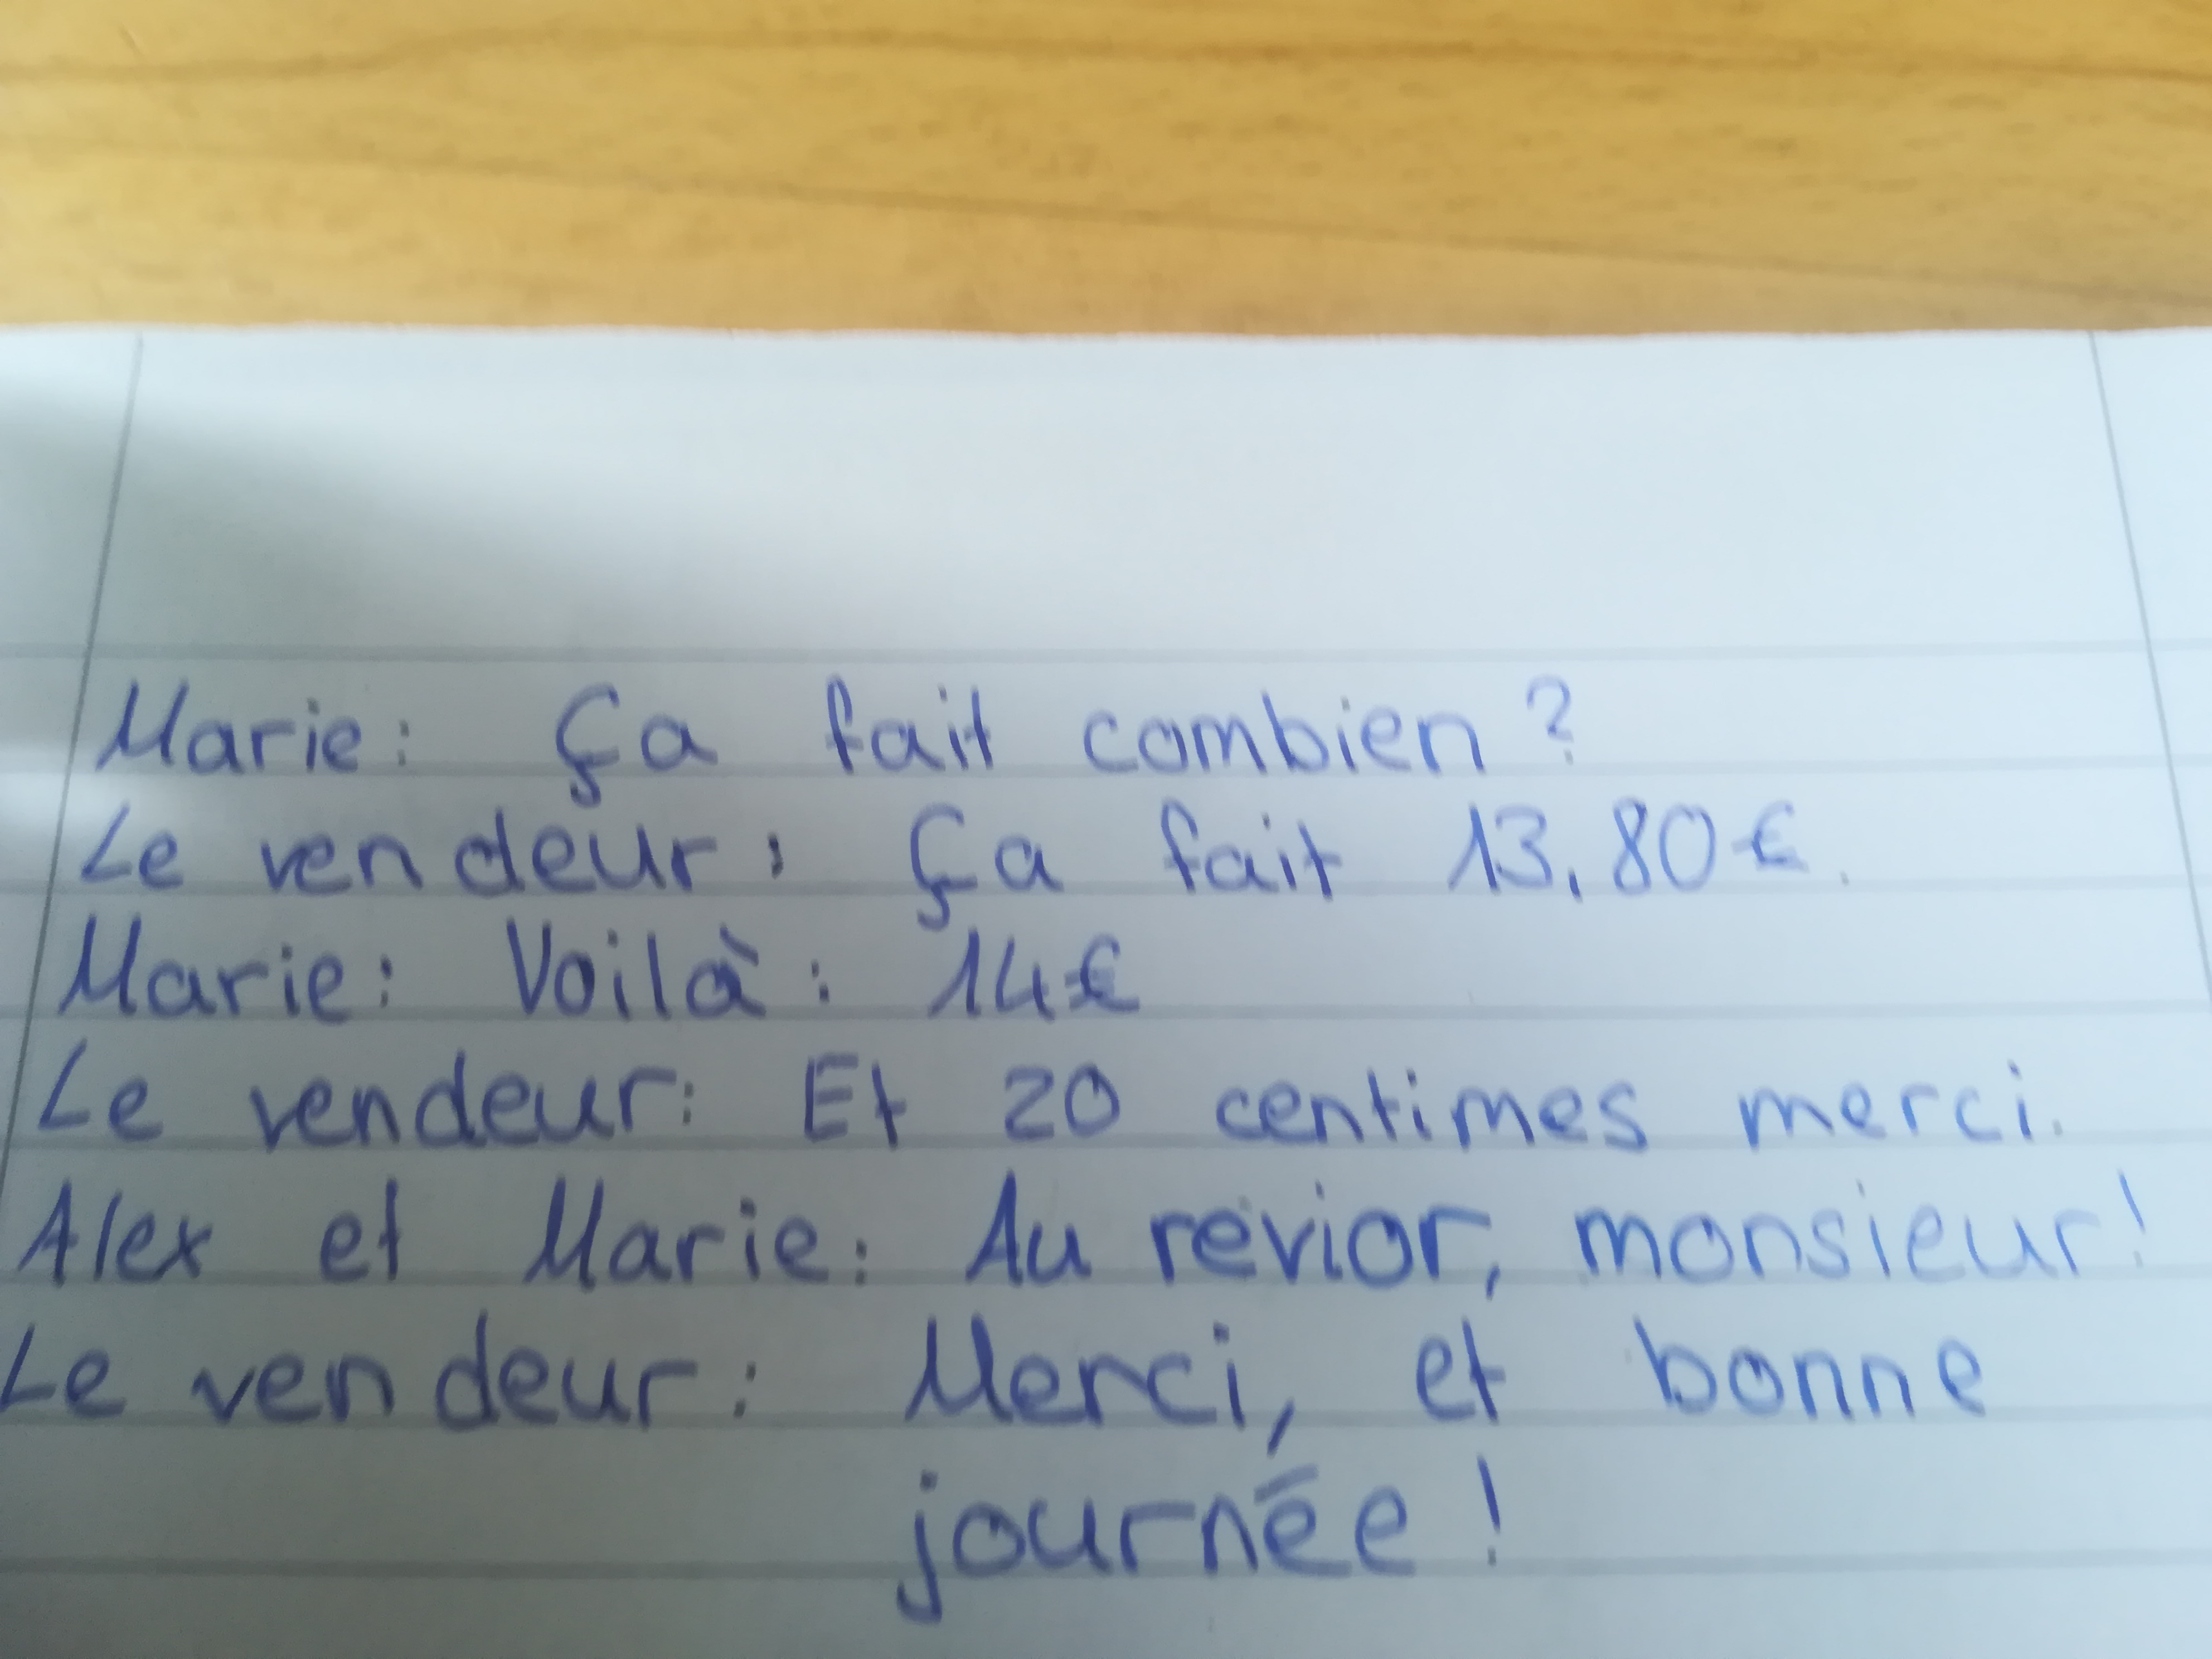 Marie: Ça fait combien ?
Le vendeur: Ça fait 13,80 €.
Marie: Voilà: 14€
Le vendeur: Et 20 centimes merci.
Alex et Marie: Au revior, monsieur!
Le vendeur: Merci, et bonne
journée!